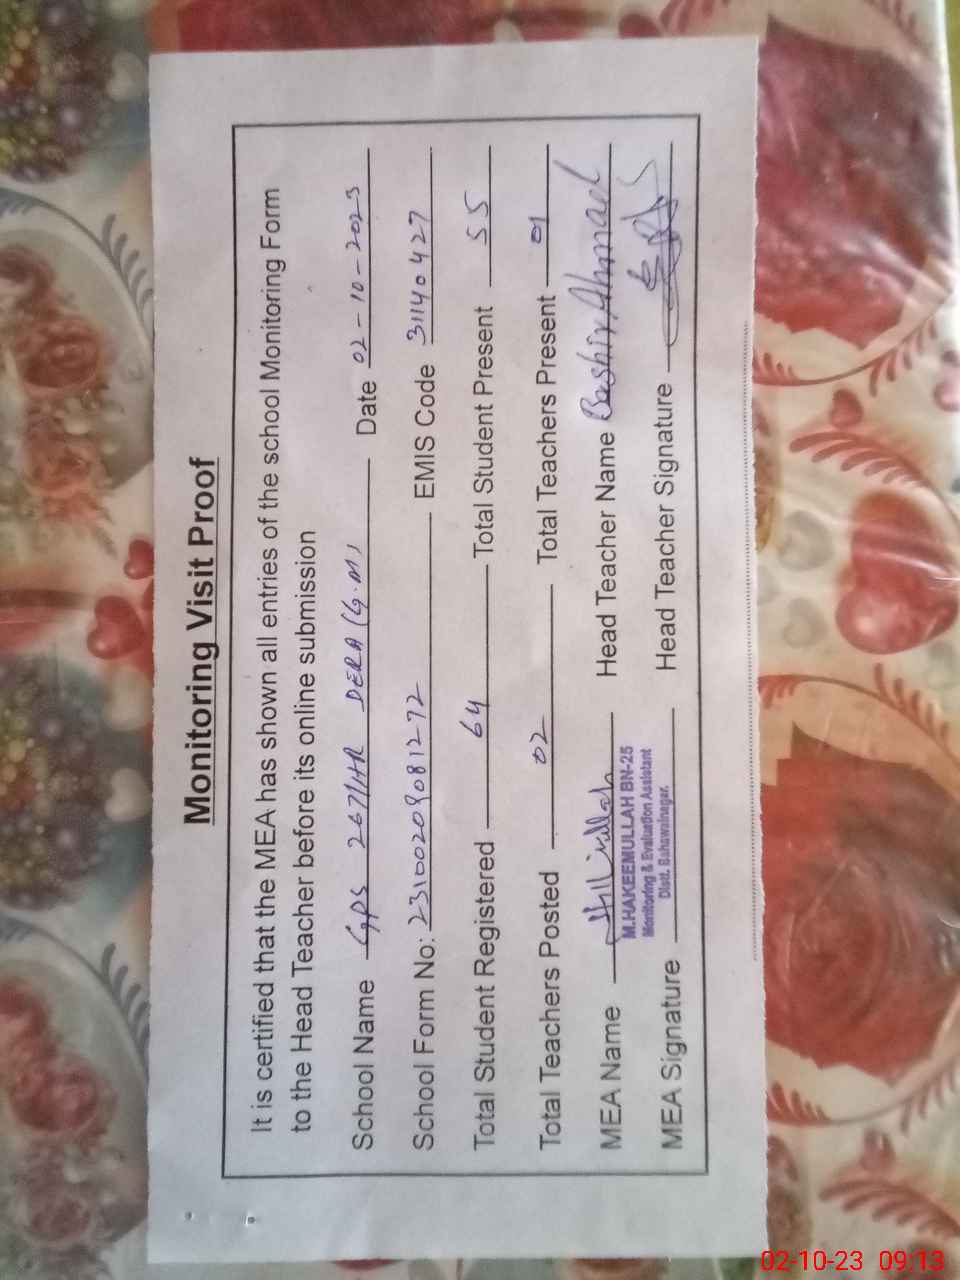 Monitoring Visit Proof
It is certified that the MEA has shown all entries of the school Monitoring Form
to the Head Teacher before its online submission
School Name GPS 267/HR DERA (G.M) Date 02-10-2023
School Form No: 23100209081272 EMIS Code 31140427
Total Student Registered 64 Total Student Present 55
Total Teachers Posted 02 Total Teachers Present 01
MEA Name Head Teacher Name Bashir Ahmad
M.HAKEEMULLAH BN-25
Monitoring & Evaluation Assistant
Distt. Bahawalnagar.
MEA Signature Head Teacher Signature
02-10-23 09:13